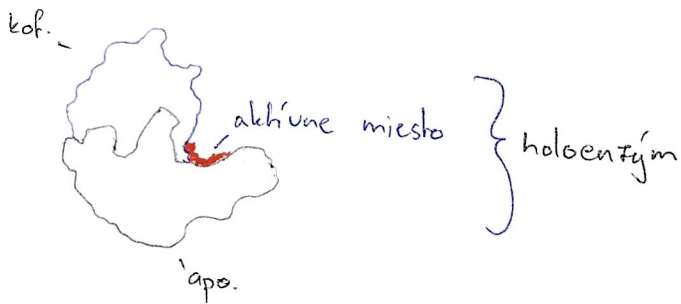 kof.
aktívne miesto
holoenzým
apo.